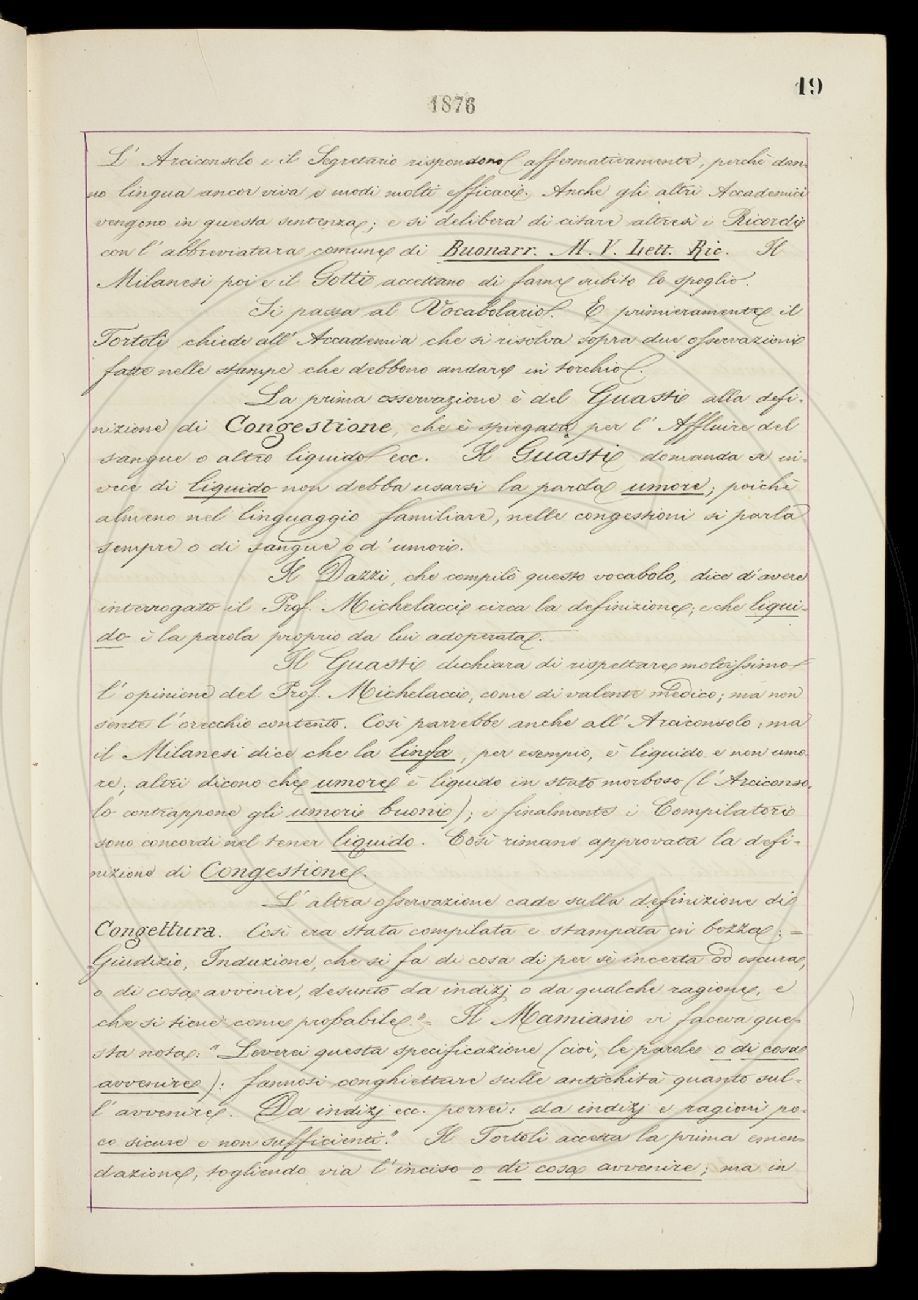 19
1876
L' Arciconsolo e il Segretario rispondono affermativamente, perchè dan-
no lingua ancor viva e modi molti efficaci. Anche gli altri Accademici
vengono in questa sentenza; e si delibera di citare altresì i Ricordi
con l'abbreviatura comune di Buonarr. M. V. Lett. Ric. Il
Milanesi poi e il Gotti accettano di farne subito lo spoglio.
Si passa al Vocabolario. E primieramente il
Tortoli chiede all'Accademia che si risolva sopra due osservazioni
fatte nelle stampe che debbono andare in torchio.
La prima osservazione è del Guasti alla defi-
nizione di Congestione, che è spiegata per l'Affluire del
sangue o altro liquido ecc. Il Guasti domanda se in-
vece di liquido non debba usarsi la parola umore; poichè
almeno nel linguaggio familiare, nelle congestioni si parla
sempre o di sangue o d'umori.
Il Dazzi, che compilò questo vocabolo, dice d'avere
interrogato il Prof. Michelacci circa la definizione; e che liqui-
do è la parola proprio da lui adoperata.
Il Guasti dichiara di rispettare moltissimo
l'opinione del Prof. Michelacci, come di valente medico; ma non
sente l'orecchio contento. Così parrebbe anche all'Arciconsolo; ma
il Milanesi dice che la linfa, per esempio, è liquido e non umo
re; altri dicono che umore è liquido in stato morboso (l'Arciconso,
lo contrappone gli umori buoni); e finalmente i Compilatori
sono concordi nel tener liquido. Così rimane approvata la defi-
nizione di Congestione.
L'altra osservazione cade sulla definizione di
Congettura. Così era stata compilata e stampata in bozza: =
Giudizio, Induzione, che si fa di cosa di per sè incerta od oscura,
o di cosa avvenire, desunto da indizj o da qualche ragione, e
che si tiene come probabile" = Il Mamiani vi faceva que-
sta nota: "Leverei questa specificazione (cioè, le parole o di cosa
avvenire): fannosi conghietture sulle antichità quanto sul-
l'avvenire. Da indizj ecc. porrei: da indizj e ragioni po-
co sicure e non sufficienti." Il Tortoli accetta la prima emen
dazione, togliendo via l'inciso o di cosa avvenire; ma in